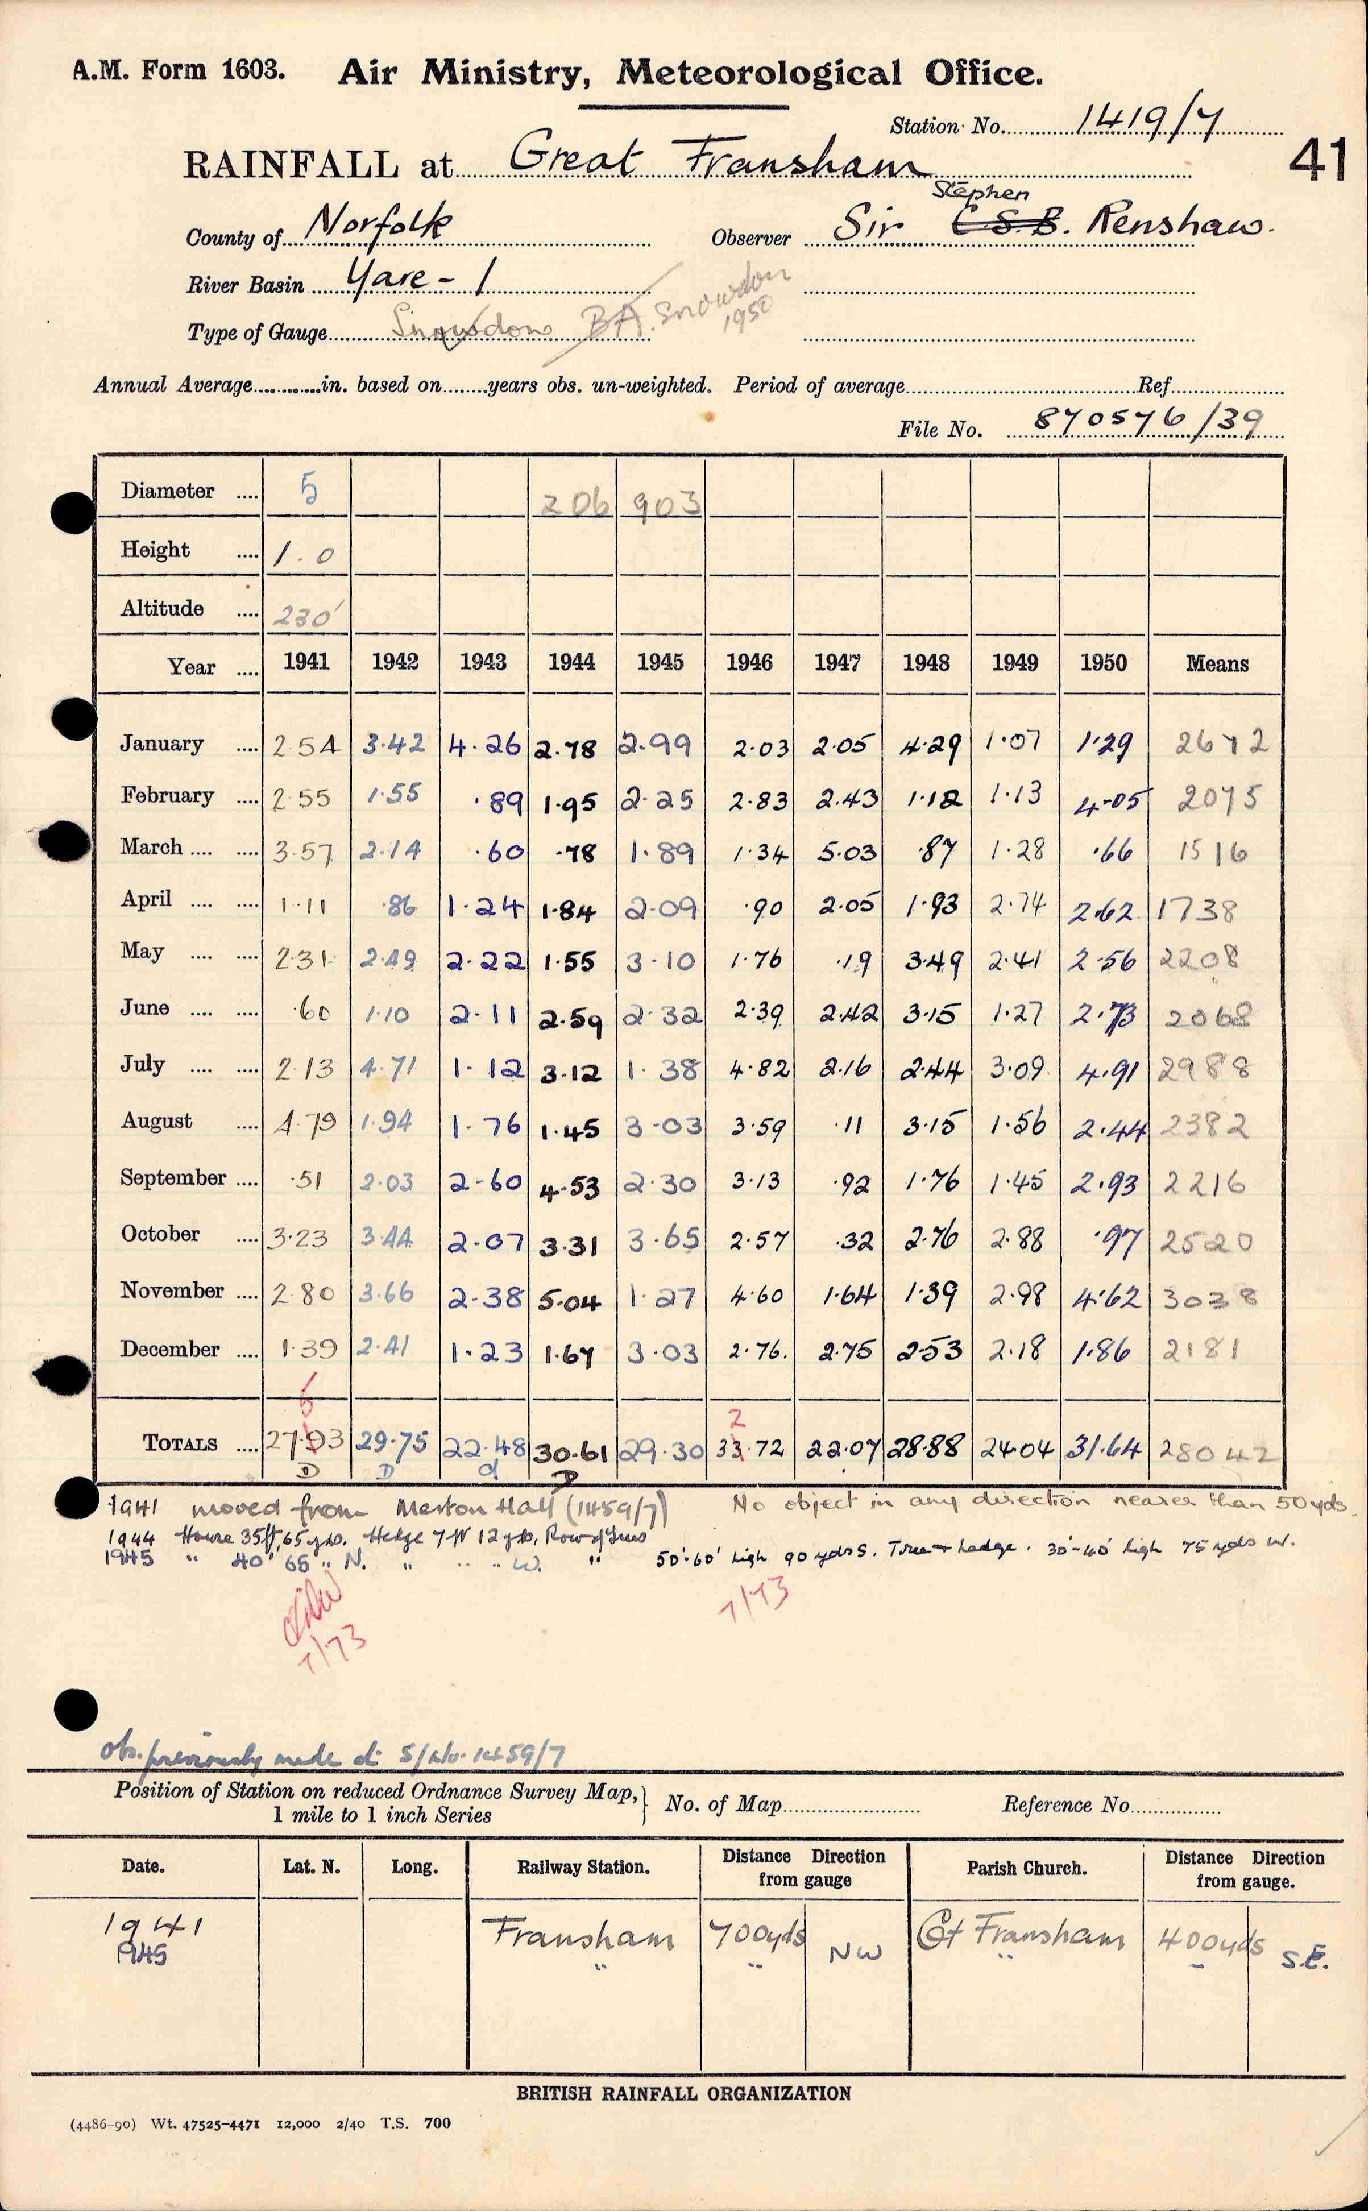 A.M. Form 1603. Air Ministry, Meteorological Office.
Station No. 1419/7
41
RAINFALL at Great Fransham
County of Norfolk Observer Sir Stephen C S B. Renshaw.
River Basin Yare - 1
Type of Gauge Snowdon BA. Snowdon 1950
Annual Average in. based on years obs. un-weighted. Period of average Ref.
File No. 870576/39
Diameter .... 5 206 903
Height .... 1.0
Altitude .... 230'
Year .... 1941 1942 1943 1944 1945 1946 1947 1948 1949 1950 Means
January .... 2.54 3.42 4.26 2.78 2.99 2.03 2.05 4.29 1.07 1.29 2672
February .... 2.55 1.55 .89 1.95 2.25 2.83 2.43 1.12 1.13 4.05 2075
March .... .... 3.57 2.14 .60 .78 1.89 1.34 5.03 .87 1.28 .66 1516
April .... .... 1.11 .86 1.24 1.84 2.09 .90 2.05 1.93 2.74 2.62 1738
May .... .... 2.31 2.49 2.22 1.55 3.10 1.76 .19 3.49 2.41 2.56 2208
June .... .... .60 1.10 2.11 2.59 2.32 2.39 2.42 3.15 1.27 2.73 2068
July .... .... 2.13 4.71 1.12 3.12 1.38 4.82 2.16 2.44 3.09 4.91 2988
August .... 4.79 1.94 1.76 1.45 3.03 3.59 .11 3.15 1.56 2.44 2382
September .... .51 2.03 2.60 4.53 2.30 3.13 .92 1.76 1.45 2.93 2216
October .... 3.23 3.44 2.07 3.31 3.65 2.57 .32 2.76 2.88 .97 2520
November .... 2.80 3.66 2.38 5.04 1.27 4.60 1.64 1.39 2.98 4.62 3038
December .... 1.39 2.41 1.23 1.67 3.03 2.76. 2.75 2.53 2.18 1.86 2181
5 2
TOTALS .... 27.03 29.75 22.48 30.61 29.30 33.72 22.07 28.88 24.04 31.64 28042
D D d D
1941 moved from Merton Hall (1459/7) No object in any direction nearer than 50 yds.
1944 House 35ft, 65 yds. Hedge 7ft 12 yds, Row of Trees
1945 " 40' 65 " N. " " " W. " 50'-60' high 90 yds S. Tree + hedge. 30'-40' high 75 yds W.
7/73
7/73
Obs. previously made at S/No. 1459/7
Position of Station on reduced Ordnance Survey Map, No. of Map Reference No.
1 mile to 1 inch Series
Date. Lat. N. Long. Railway Station. Distance Direction from gauge Parish Church. Distance Direction from gauge.
1941 Fransham 700yds NW Gt Fransham 400yds S.E.
1945 " " " "
BRITISH RAINFALL ORGANIZATION
(4486-90) Wt. 47525-4471 12,000 2/40 T.S. 700